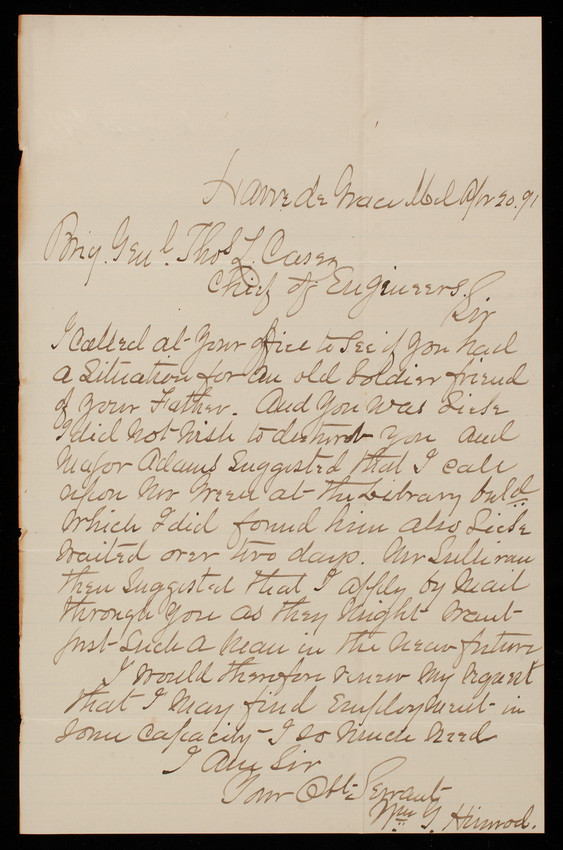 Havre de Grace Md Apr 20. 91
Brig. Genl. Thos L. Casey
Chief of Engineers.
Sir
I called at your office to see if you had
a Situation for an old Soldier friend
of your Father. And you was Sick
I did not wish to disturb you and
Major Adams Suggested that I call
upon Mr Green at the Library build
which I did found him also Sick
waited over two days. Mr Sullivan
then Suggested that I apply by Mail
through you as they Might want
just Such a Man in the near future
I would therefore renew My request
that I May find Employment in
some capacity I so much need
I Am Sir
Your Obt Servant
Wm G. Himrod.